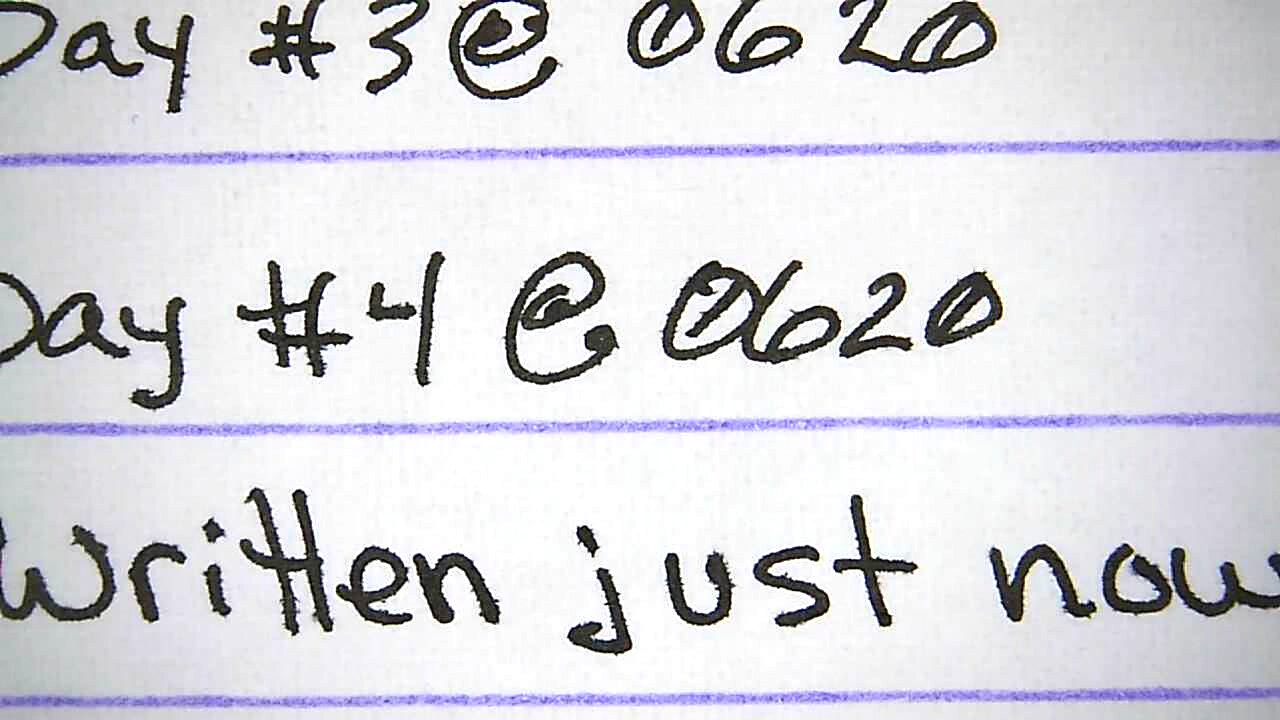 Day #3@ 0620
Day #4 @ 0620
Written just now